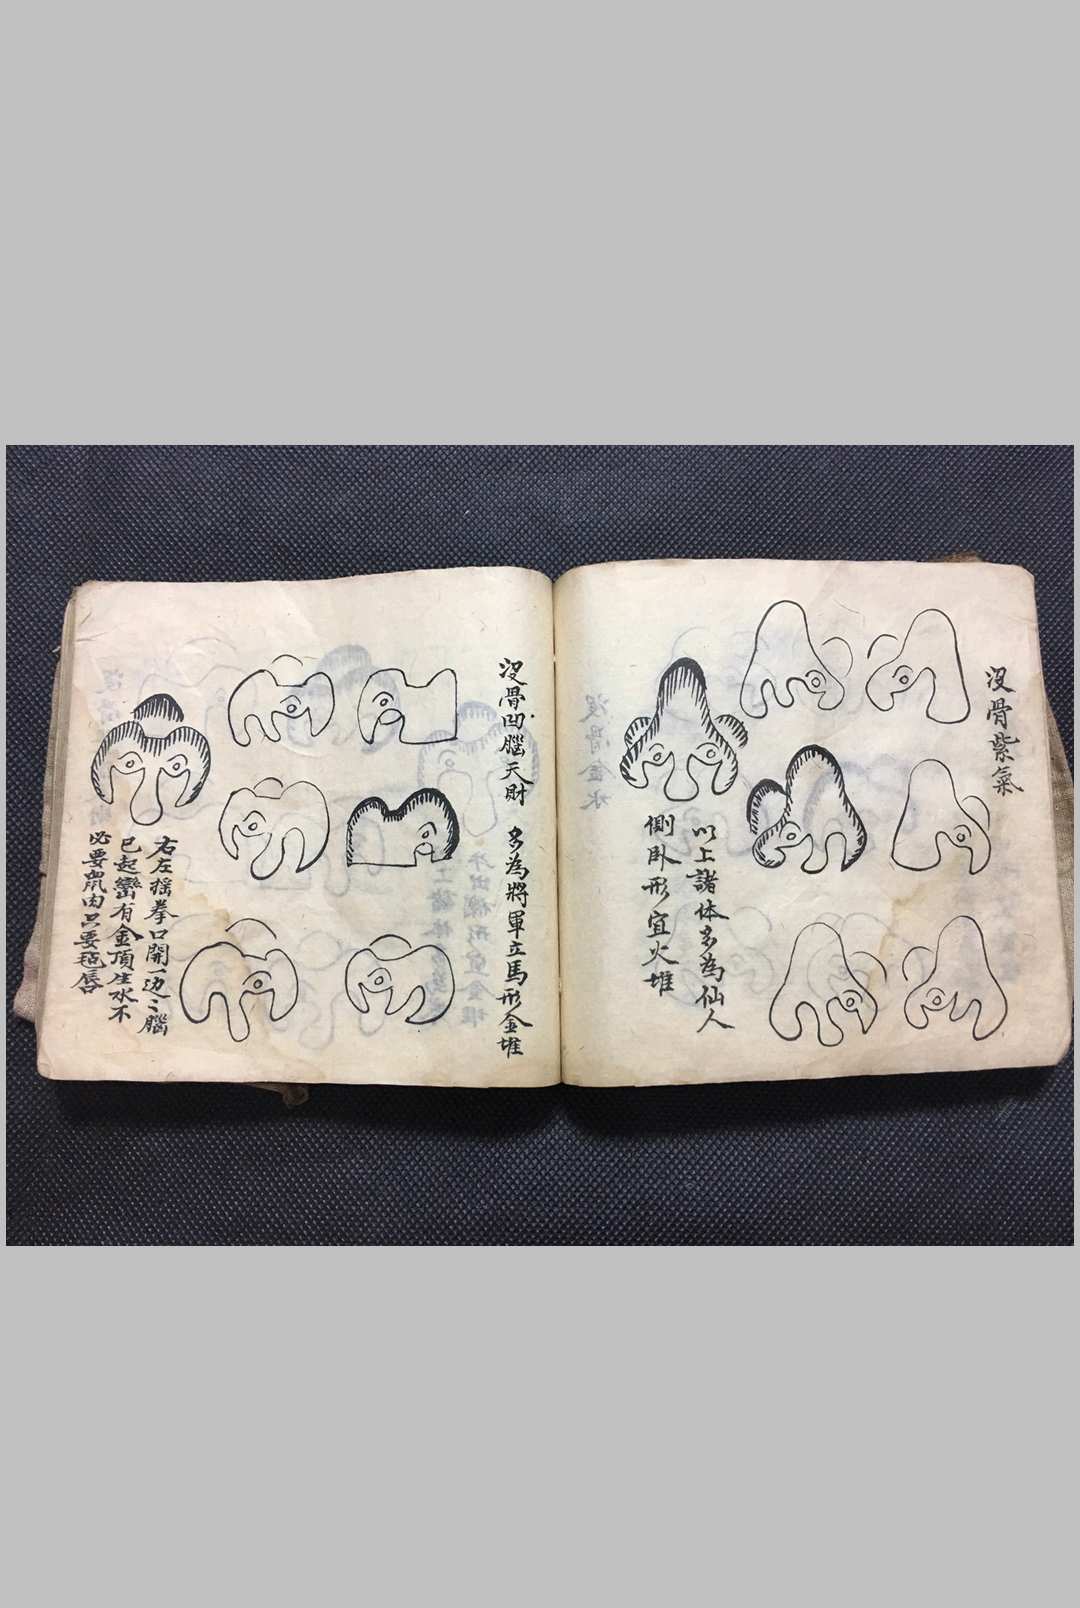 没骨紫氣
以上諸体多為仙人
側卧形宜火堆
没骨凹腦天財 多為將軍立馬形金堆
右左摇拳口開一边之腦
已起巒有金頂生水不
必要鼠肉只要毡唇